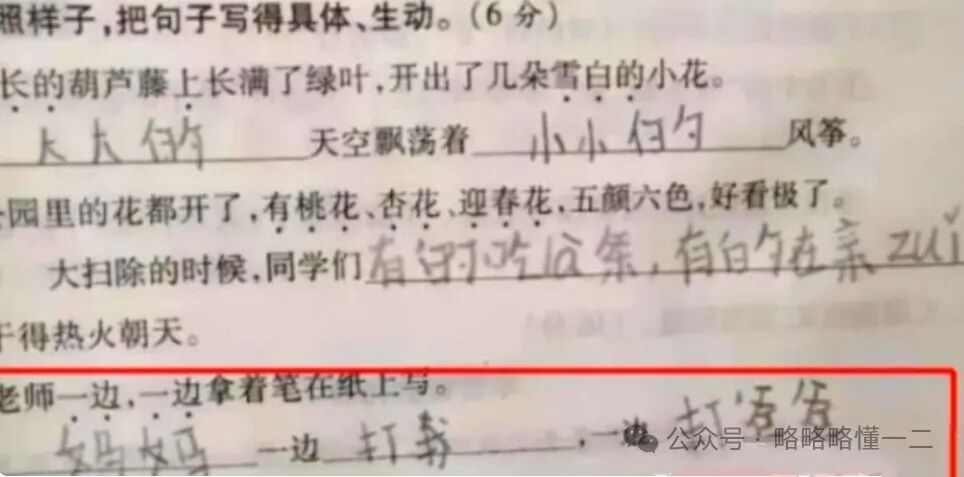 照样子,把句子写得具体、生动。(6分)
长的葫芦藤上长满了绿叶,开出了几朵雪白的小花。
大大的天空飘荡着小小的风筝。
园里的花都开了,有桃花、杏花、迎春花,五颜六色,好看极了。
大扫除的时候,同学们有的吃谷条,有的在亲zuǐ
干得热火朝天。
老师一边,一边拿着笔在纸上写。
妈妈一边打我,一边打爸爸
公众号·略略略懂一二